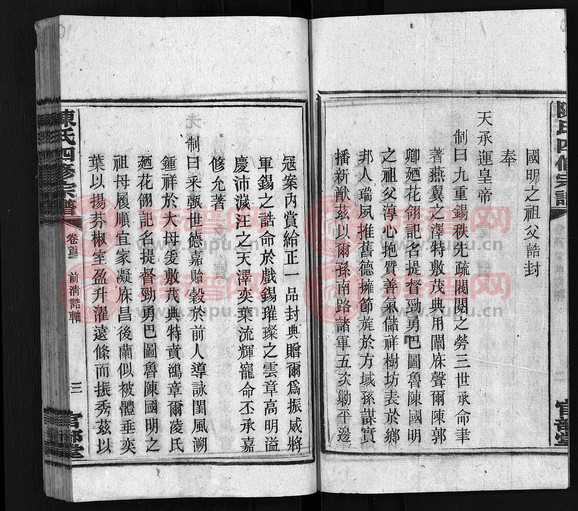 陳氏四修宗譜
官都堂
國明之祖父誥封
奉
天承運皇帝
制曰九重錫秩先疏閥閱之勞三世承命聿
著燕翼之澤特敷茂典用闡庥聲爾陳郭
卿廼花翎記名提督勁勇巴圖魯陳國明
之祖父淳心抱質善氣儲祥樹坊表於鄉
邦人瑞夙推舊德擁節旄於方域孫謀實
播新猷茲以爾孫南路諸軍五次勦平邊
寇案內賞給正一品封典贈爾為振威將
軍錫之誥命於戲錫璀璨之雲章高明溢
慶沛濊汪之天澤奕葉流輝寵命丕承嘉
修允著
制曰釆戟世德嘉貽穀於前人導詠閨風溯
鍾祥於大母爰敷茂典特賁鴻章爾凌氏
廼花翎記名提督勁勇巴圖魯陳國明之
祖母履順宜家凝庥昌後蘭似被體垂奕
葉以揚芬椒室盈升濯遠條而振秀茲以
陳氏四修宗譜
卷首 前清誥軸
三
官都堂